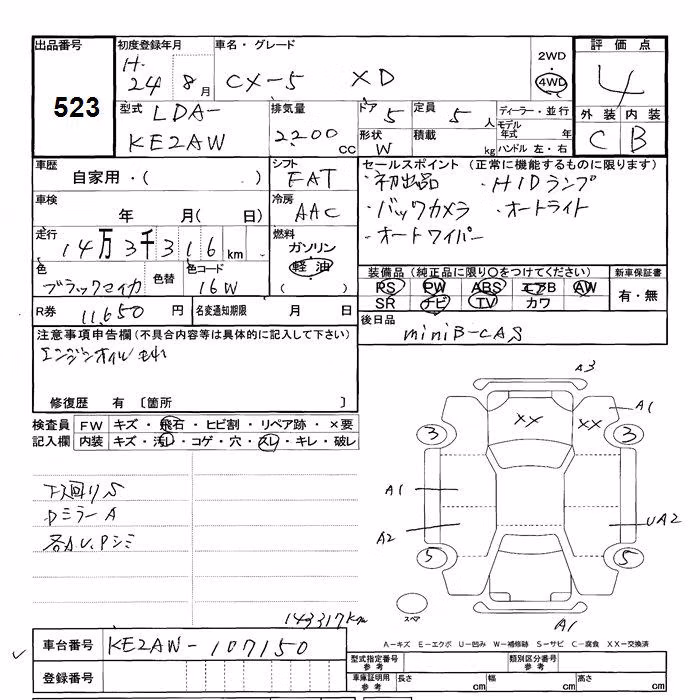 出品番号 初度登録年月 車名・グレード 評価点
523
H.
24 8月 CX-5 XD 2WD 4WD 4
型式 LDA-
KE2AW
排気量 2200 cc
ドア 5 定員 5人 ディーラー・並行
形状 W 積載 kg モデル年式 年 ハンドル 左・右
外装 内装
C B
車歴 自家用・( )
シフト FAT
車検 年 月( 日)
冷房 AAC
走行 14万3千316km
燃料 ガソリン 軽油 ( )
色 ブラックマイカ 色替 色コード 16W
R券 11,650円 名変通知期限 月 日
セールスポイント (正常に機能するものに限ります)
・初出品 ・HIDランプ
・バックカメラ ・オートライト
・オートワイパー
装備品(純正品に限り○をつけてください) 新車保証書
PS PW ABS エアB AW 有・無
SR ナビ TV カワ
後日品 miniB-CAS
注意事項申告欄(不具合内容等は具体的に記入して下さい)
エンジンオイル
修復歴 有 〔箇所 〕
検査員記入欄
FW キズ・飛石・ヒビ割・リペア跡・×要
内装 キズ・汚レ・コゲ・穴・スレ・キレ・破レ
下廻りS
DミラーA
各A.U.Pシミ
143317km
A3
XX XX A1
3 3
A1
A2 UA2
5 5
スペア A1
A-キズ E-エクボ U-凹み W-補修跡 S-サビ C-腐食 XX-交換済
車台番号 KE2AW-107150
登録番号
型式指定番号 参考 類別区分番号 参考
車庫証明用 参考 長さ cm 幅 cm 高さ cm